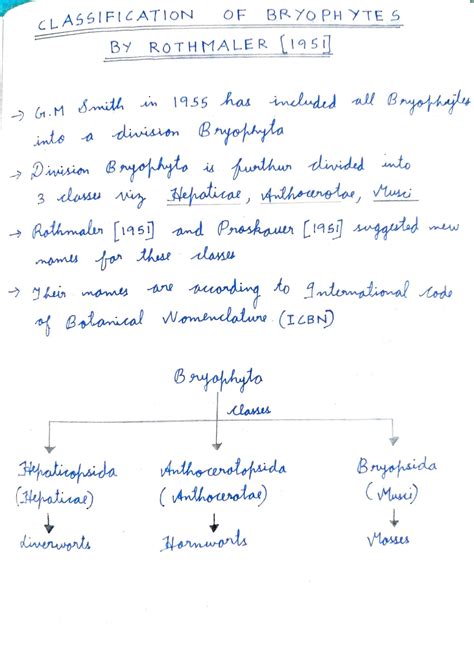 CLASSIFICATION OF BRYOPHYTES
BY ROTHMALER [1951]
→ G.M Smith in 1955 has included all Bryophytes
into a division Bryophyta
→ Division Bryophyta is furthur divided into
3 classes viz Hepaticae, Anthocerotae, Musci
→ Rothmaler [1951] and Proskauer [1951] suggested new
names for these classes
→ Their names are according to International code
of Botanical Nomenclature (ICBN)
Bryophyta
classes
Hepaticopsida Anthocerotopsida Bryopsida
(Hepaticae) (Anthocerotae) (Musci)
Liverworts Hornworts Mosses